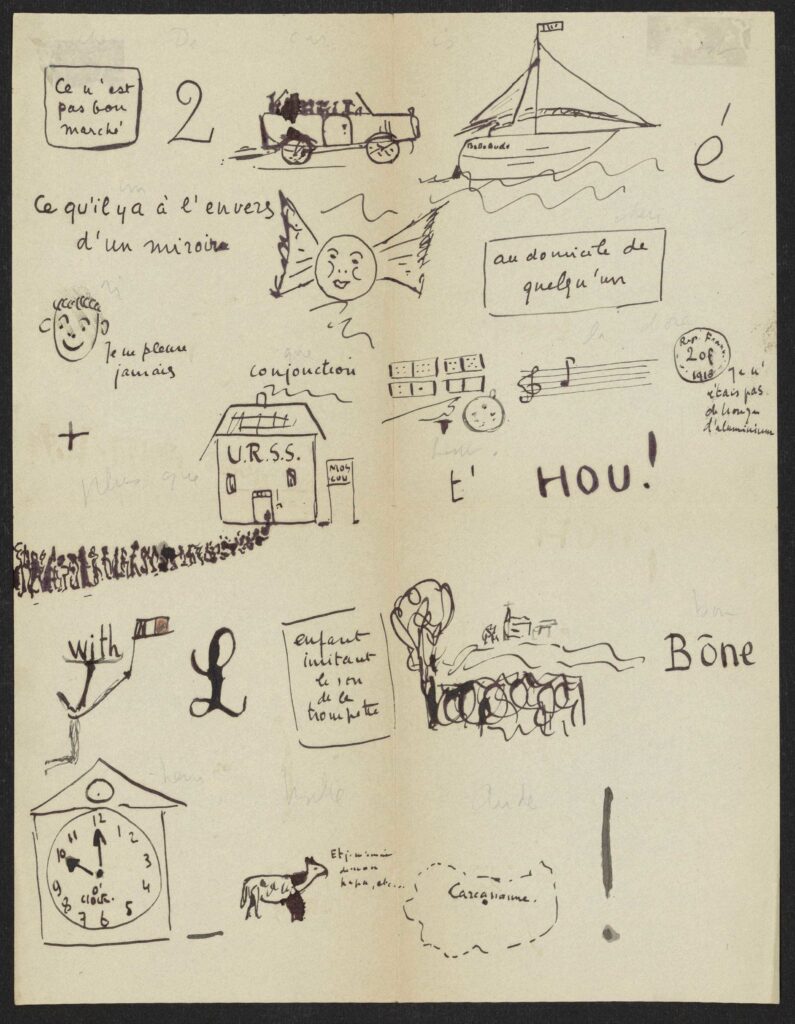 Ce n'est
pas bon
marché
2
é
Ce qu'il y a à l'envers
d'un miroir
au domicile de
quelqu'un
Je ne pleure
jamais
conjonction
Rep. Franc.
20f
Je n'
étais pas
d'aluminium
+
U.R.S.S.
MOS
COU
t'
HOU!
plus que
with
£
enfant
imitant
le son
de la
trompette
Bône
bon
12
11
1
10
2
9
3
8
4
7
6
5
O'
Clock.
papa, etc...
Carcassonne.
Aude
!